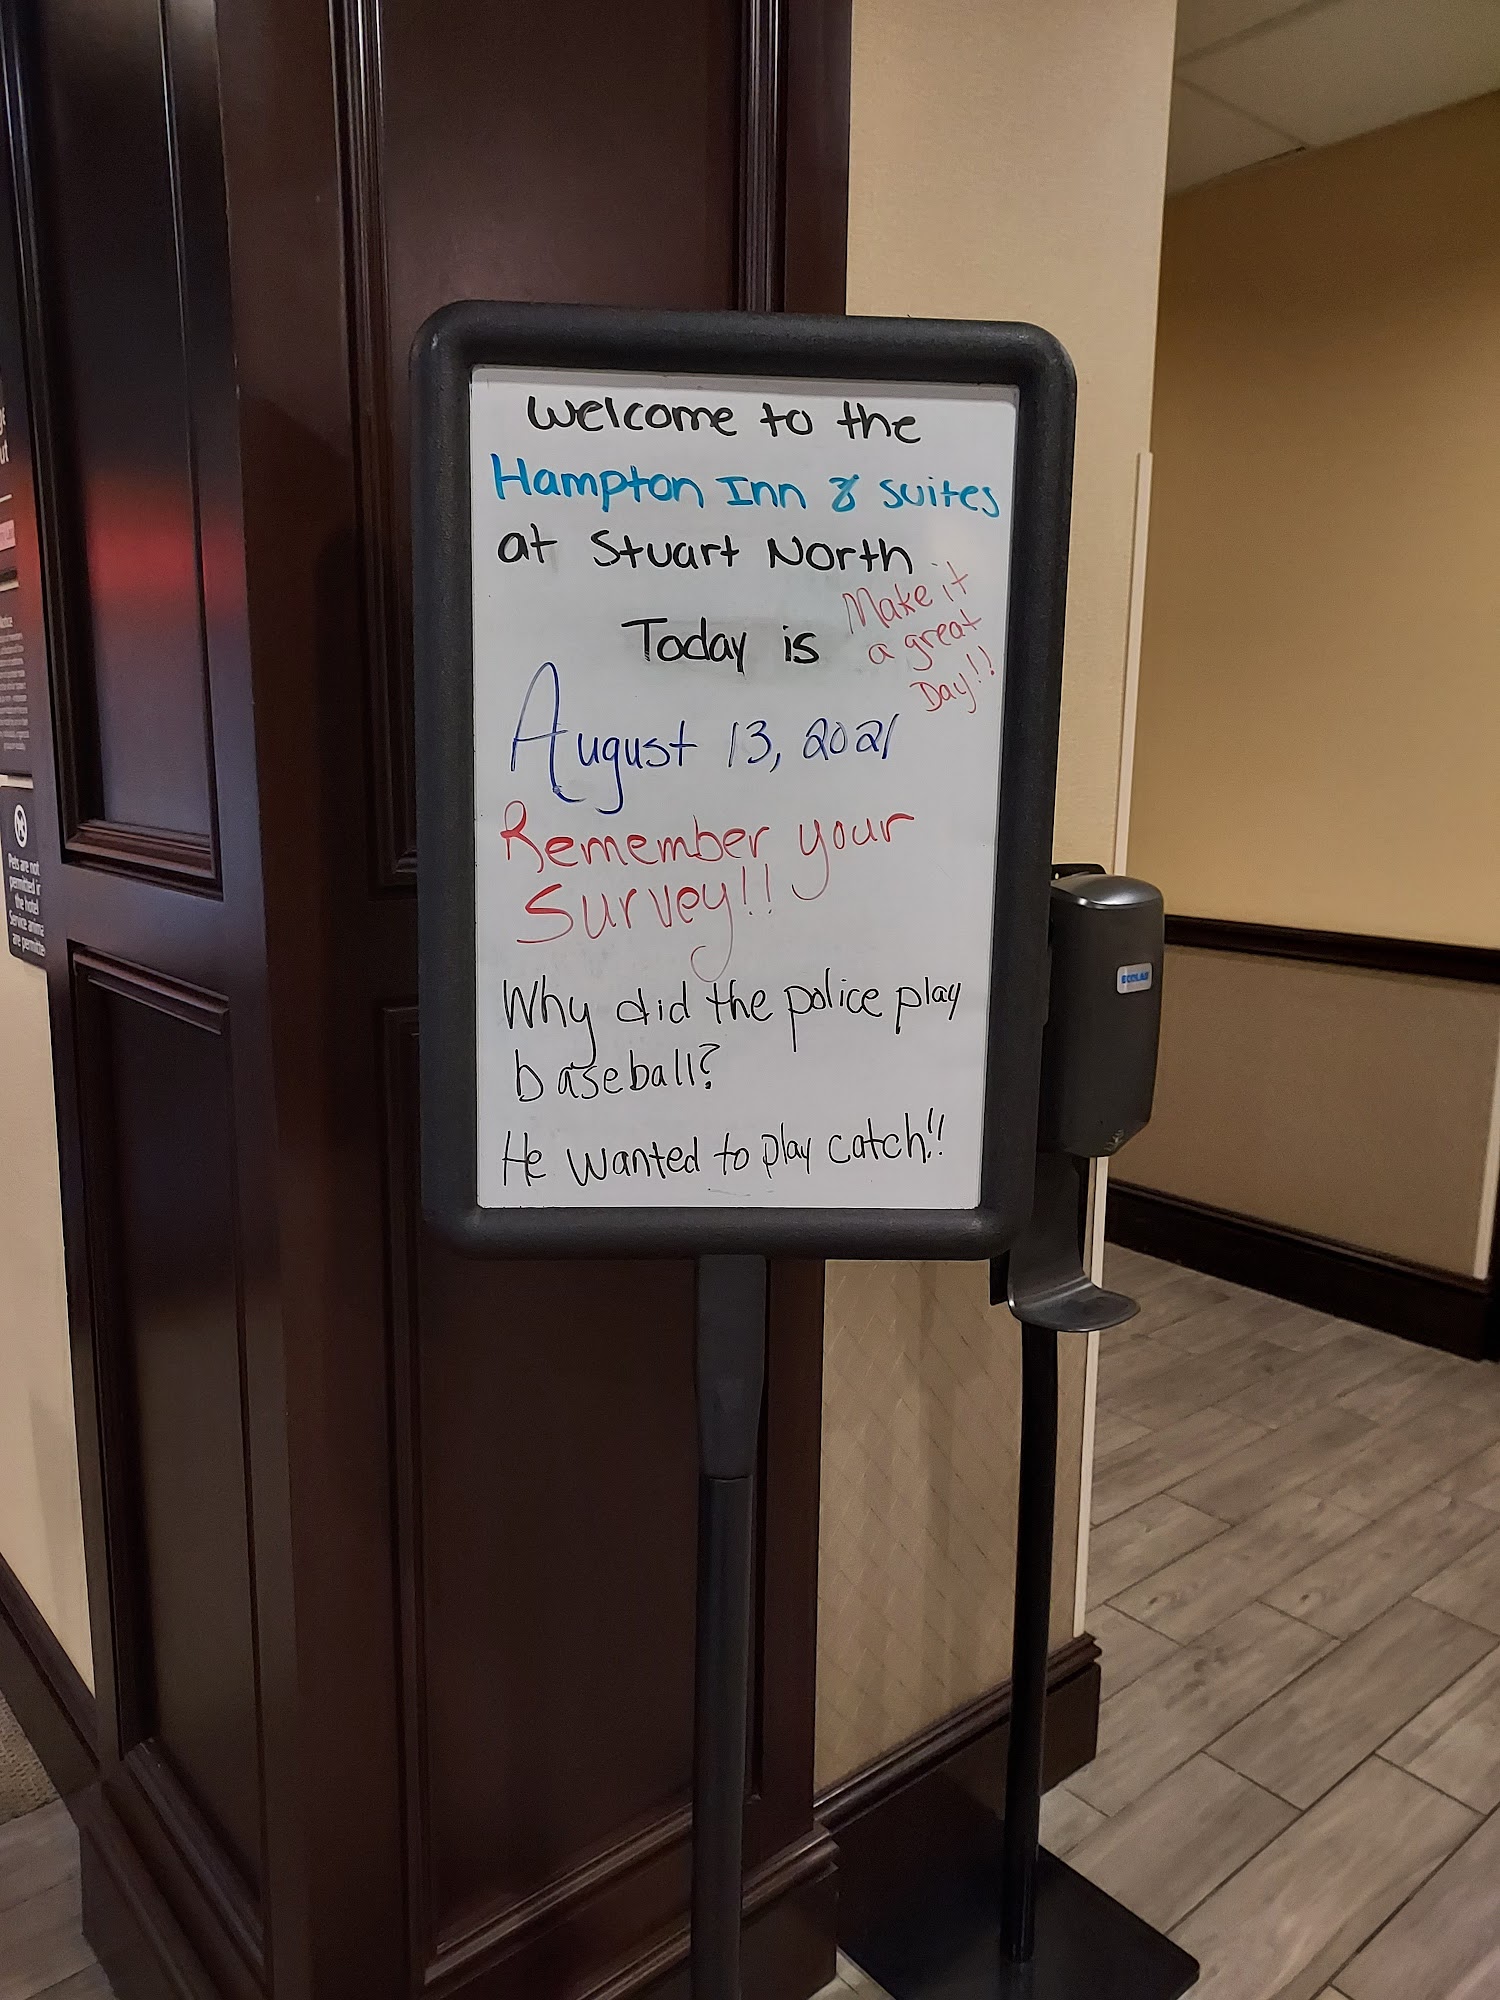 Welcome to the
Hampton Inn & Suites
at Stuart North
Today is
Make it
a great
Day!!
August 13, 2021
Remember your
Survey!!
Why did the police play
baseball?
He wanted to play catch!!
ECOLAB
Pets are not
permitted in
the hotel
Service anima
are permitte